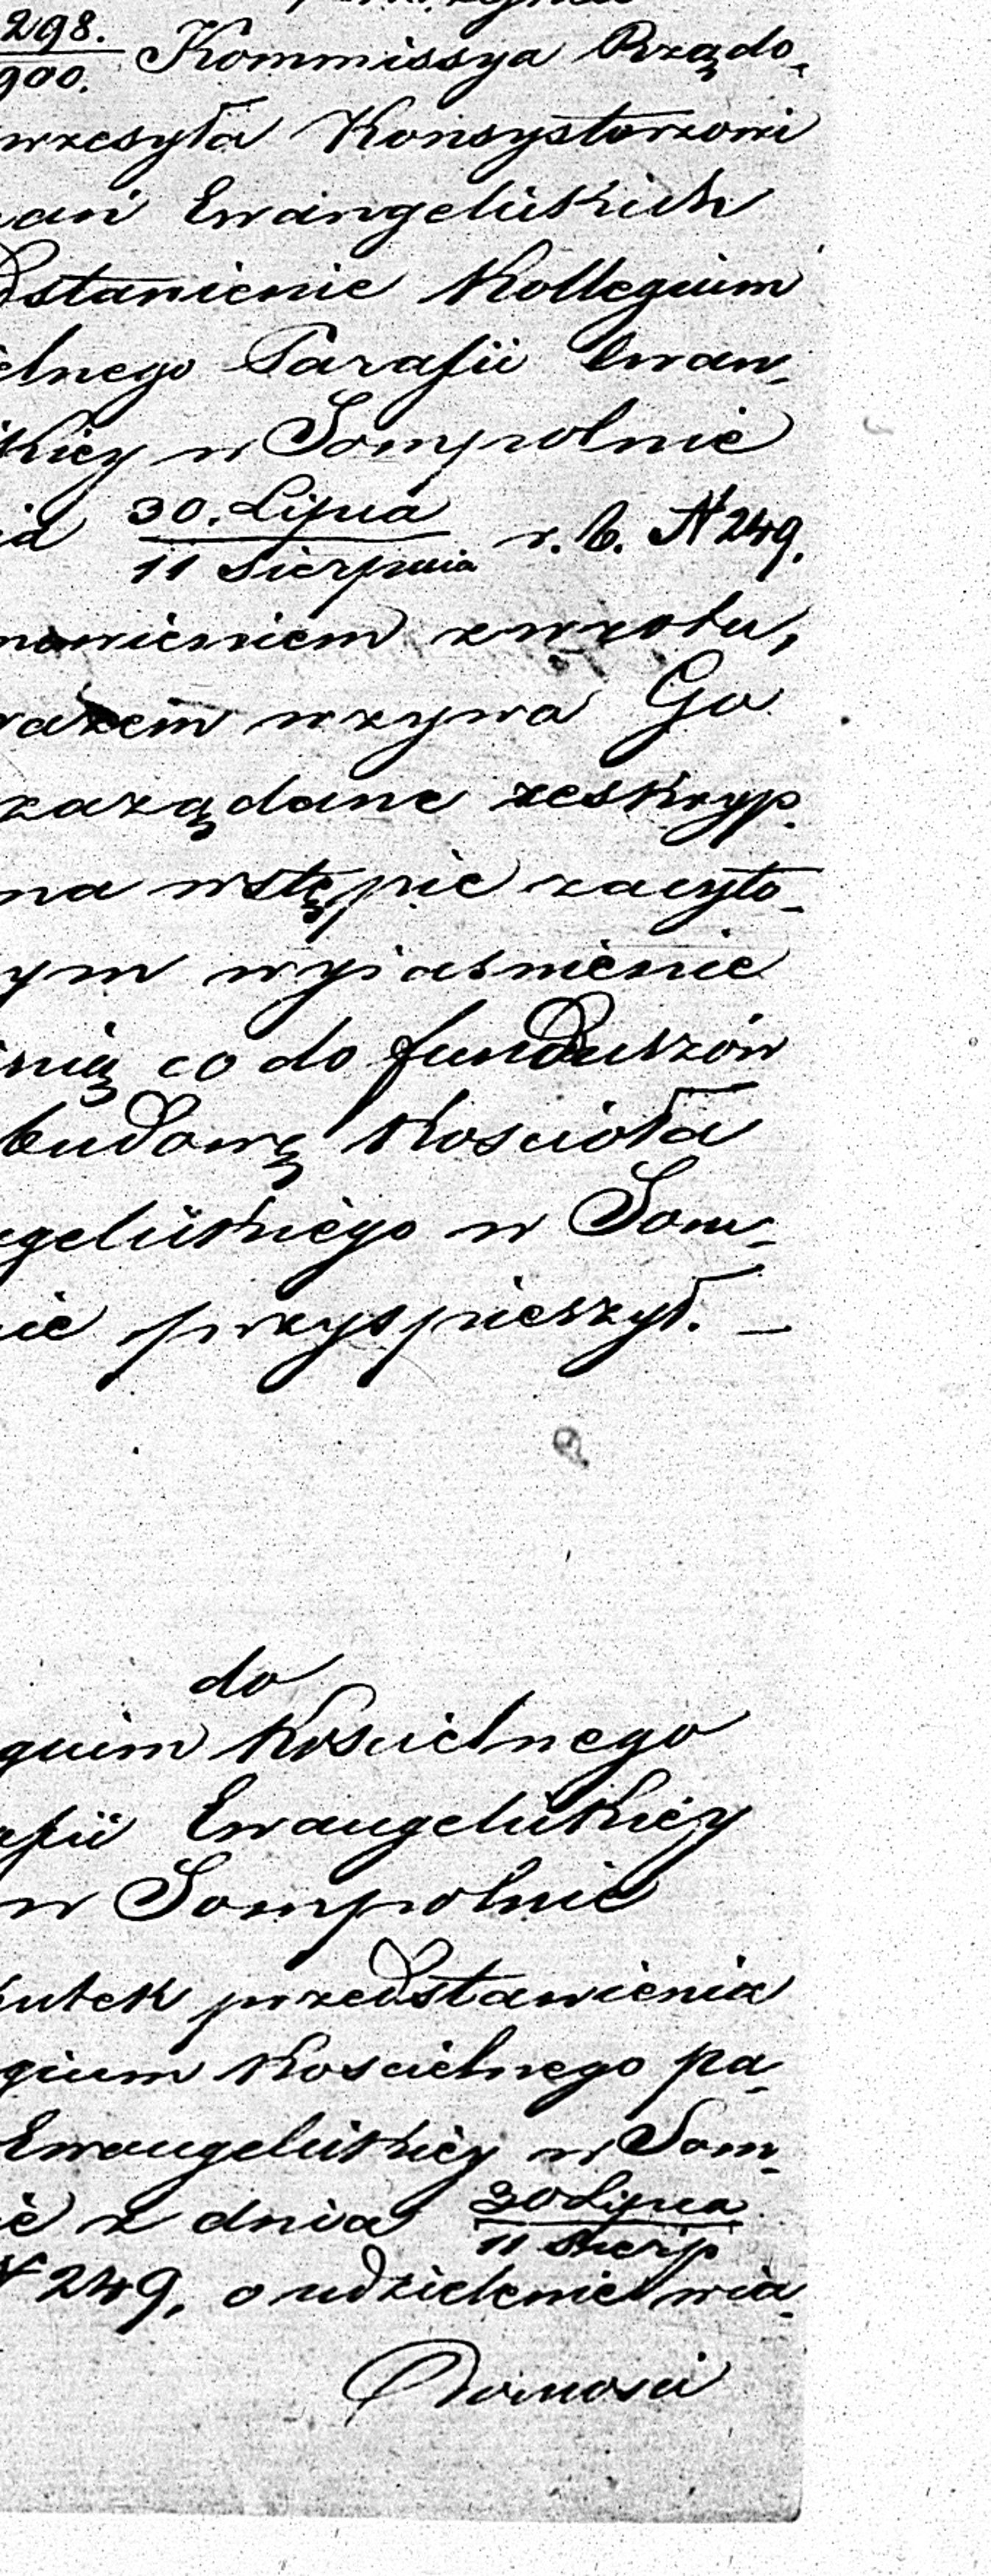 298.
900. Kommissya Rządo-
wzesyła Konsystorzowi
nań Ewangelickich
dstawienie Kollegium
elnego Parafii Ewan-
kiey w Sompolnie
ia 30. Lipca / 11 Sierpnia r. b. N 249.
mówieniem zwrotu,
razem wzywa Go
zażądane reskryp-
na wstępie zacyto-
ym wyjaśnienie
śnią co do funduszów
budowę Kościoła
gelickiego w Som-
ie przyspieszył. —
do
gium Kościelnego
afii Ewangelickiey
w Sompolnie
kutek przedstawienia
gium Kościelnego pa-
Ewangelickiey w Som-
ie z dnia 30 Lipca / 11 Sierp
N 249, o udzielenie wia-
Domości